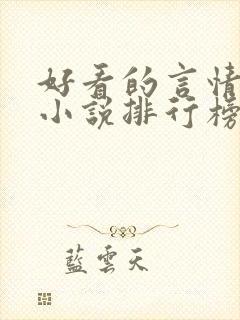 好看的言情
小说排行榜
藍雲天